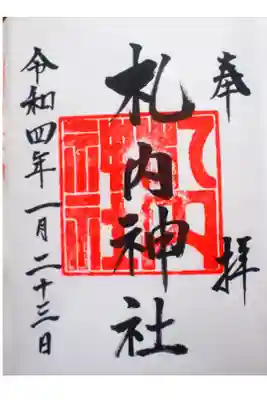 奉拝
札内神社
令和四年一月二十三日
札内
神社